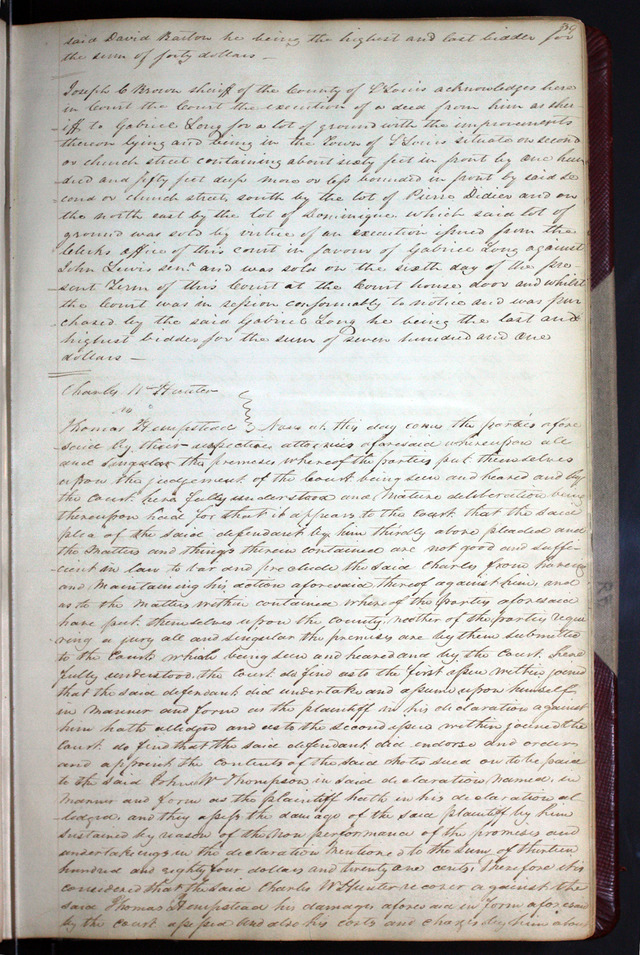 said David Barton he being the highest and last bidder for
the sum of forty dollars —
Joseph C Brown sheriff of the County of St Louis acknowledges here
in Court the Court the execution of a deed from him as sher-
iff to Gabriel Long for a lot of ground with the improvements
thereon lying and being in the town of St Louis situate on second
or church street containing about sixty feet in front by one hun
dred and fifty feet deep more or less bounded in front by said se
cond or church street, south by the lot of Pierre Didier and on
the north east by the lot of Dominique which said lot of
ground was sold by virtue of an execution issued from the
Clerks office of this court in favour of Gabriel Long against
John Lewis senr and was sold on the sixth day of the pre-
sent Term of this Court at the Court house door and whilst
the Court was in session conformably to notice and was pur
chased by the said Gabriel Long he being the last and
highest bidder for the sum of seven hundred and one
dollars —
Charles W Hunter
vs
Thomas Hempstead } Now at this day comes the parties afore
said by their respective attornies aforesaid whereupon all
and singular the premises whereof the parties put themselves
upon the judgement of the Court being seen and heard and by
the Court here fully understood and mature deliberation being
thereupon had for that it appears to the Court that the said
plea of the said defendant by him thirdly above pleaded and
the matters and things therein contained are not good and suffi-
cient in law to bar and preclude the said Charles from having
and maintaining his action aforesaid thereof against him, and
as to the matters within contained whereof the parties aforesaid
have put themselves upon the country, neither of the parties requi
ring a jury all and singular the premises are by them submitted
to the Court which being seen and heard and by the Court here
fully understood, the Court do find as to the first issue within joined
that the said defendant did undertake and assume upon himself
in manner and form as the plaintiff in his declaration against
him hath alledged and as to the second issue within joined the
Court do find that the said defendant did endorse and order
and appoint the contents of the said note sued on to be paid
to the said John W Thompson in said declaration named, in
manner and form as the plaintiff hath in his declaration al
ledged, and they assess the damage of the said plaintiff by him
sustained by reason of the non performance of the promises and
undertakings in the declaration mentioned to the sum of thirteen
hundred and eighty four dollars and twenty one cents; Therefore it is
considered that the said Charles W Hunter recover against the
said Thomas Hempstead his damages aforesaid in form aforesaid
by the court assessed and also his costs and charges by him about